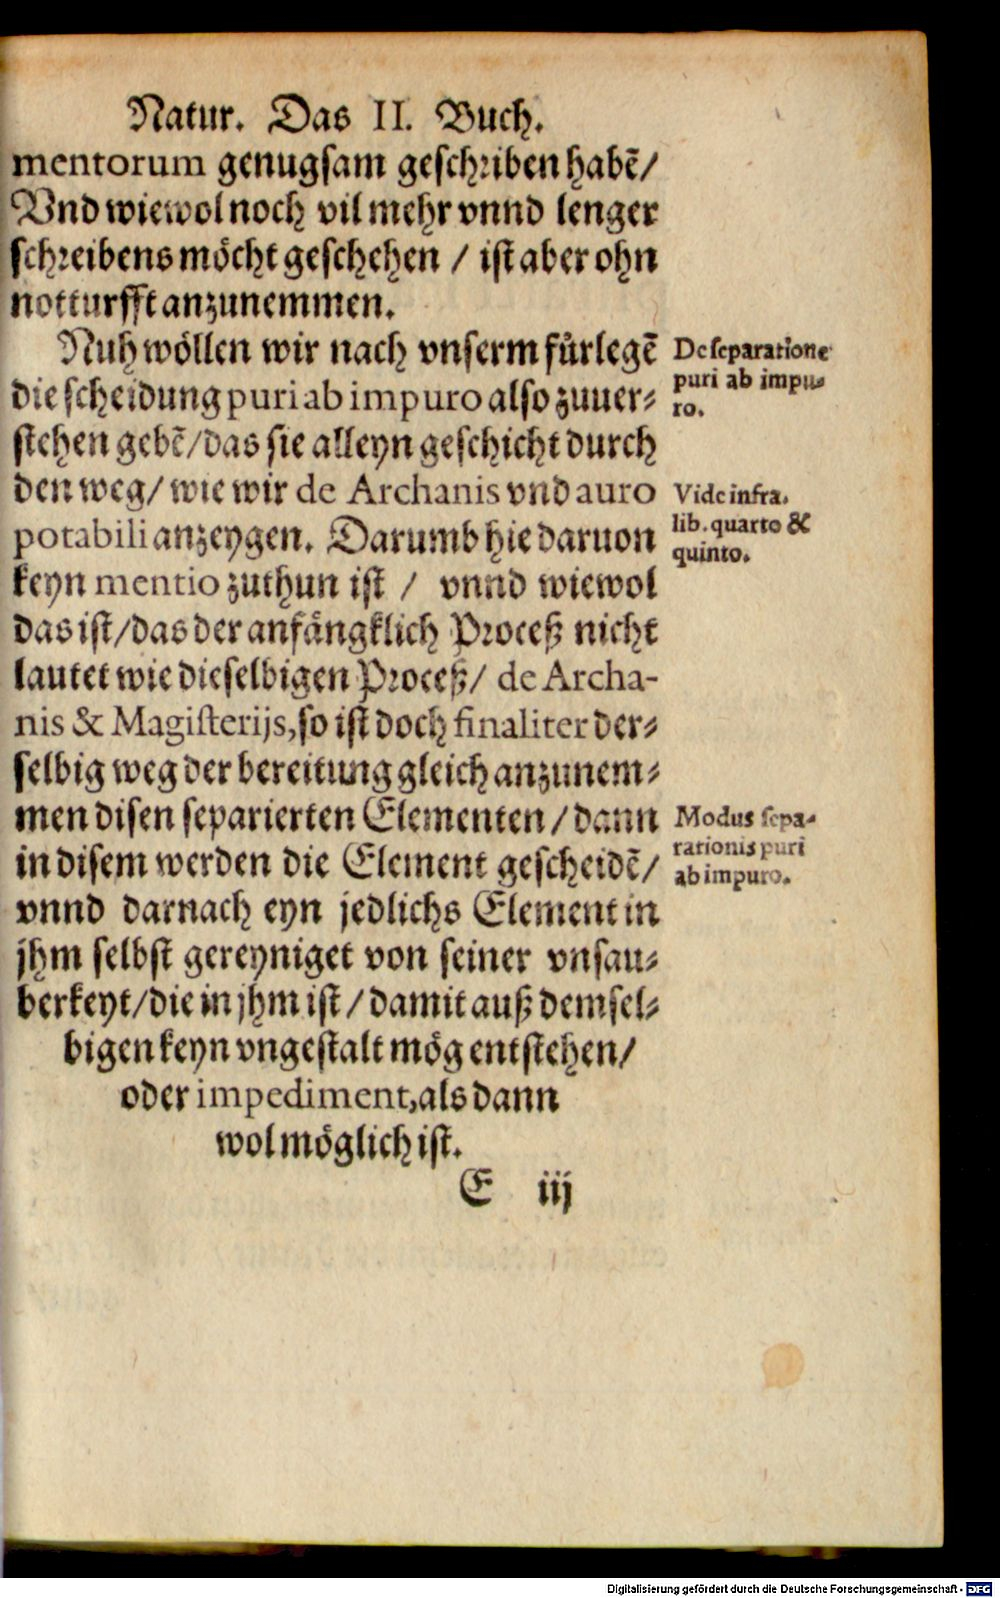 Natur. Das II. Buch.
mentorum genugsam geschriben habē/
Vnd wiewol noch vil mehr vnnd lenger
schreibens möcht geschehen / ist aber ohn
notturfft anzunemmen.
Nuh wöllen wir nach vnserm fürlegē
die scheidung puri ab impuro also zuuer-
stehen gebē/das sie alleyn geschicht durch
den weg/ wie wir de Archanis vnd auro
potabili anzeygen. Darumb hie daruon
keyn mentio zuthun ist / vnnd wiewol
das ist/das der anfängklich Proceß nicht
lautet wie dieselbigen Proceß/ de Archa-
nis & Magisterijs, so ist doch finaliter der-
selbig weg der bereitung gleich anzunem-
men disen separierten Elementen / dann
in disem werden die Element gescheidē/
vnnd darnach eyn jedlichs Element in
jhm selbst gereyniget von seiner vnsau-
berkeyt/die in jhm ist / damit auß demsel-
bigen keyn vngestalt mög entstehen/
oder impediment, als dann
wol möglich ist.
E iij
De separatione
puri ab impu-
ro.
Vide infra.
lib. quarto &
quinto.
Modus sepa-
rationis puri
ab impuro.
Digitalisierung gefördert durch die Deutsche Forschungsgemeinschaft - DFG